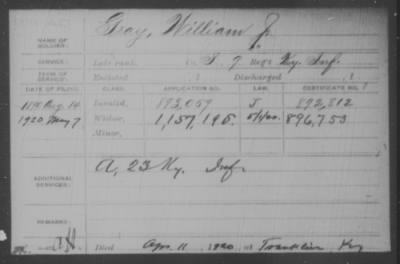 Gray, William J.
NAME OF SOLDIER:
SERVICE: Late rank, Co. I, 7 Reg't Ky. Inf.
TERM OF SERVICE: Enlisted , 1 Discharged , 1
DATE OF FILING. CLASS. APPLICATION NO. LAW. CERTIFICATE NO.
1890 Aug. 14 Invalid, 893,059 J 892,812
1920 May 7 Widow, 1,157,195. 896,753
Minor,
A, 23 Ky. Inf.
ADDITIONAL SERVICES:
REMARKS:
Died Apr. 11, 1920, at Franklin Ky